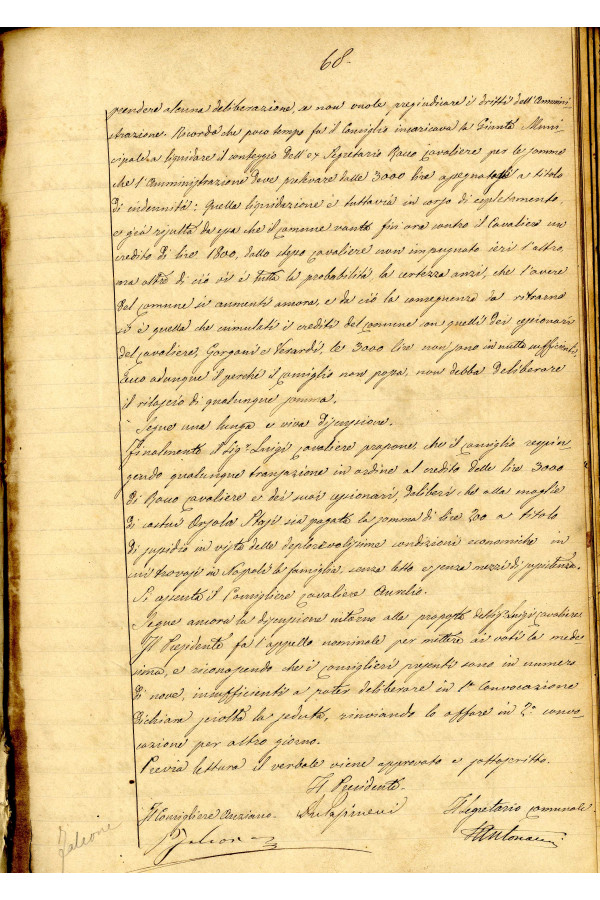 68.
prendere alcuna deliberazione, e non vuole pregiudicare i dritti dell'Ammini
strazione. Ricorda che poco tempo fa il Consiglio incaricava la Giunta Muni=
cipale a liquidare il conteggio dell'ex Segretario Rocco Cavaliere per le somme
che l'Amministrazione deve prelevare dalle 3000 lire assegnategli a titolo
di indennità: quella liquidazione è tuttavia in corso di espletamento,
e già risulta da essa che il Comune vanta fin'ora contro il Cavaliere un
credito di lire 1800, dallo stesso Cavaliere non impugnato ieri l'altro,
ma oltre di ciò vi è tutta la probabilità la certezza anzi, che l'avere
del Comune si aumenti ancora, e da ciò la conseguenza da ritrarne
si è quella che cumulati i crediti del Comune con quelli dei cessionari
del Cavaliere, Gorgoni e Verardi, le 3000 lire non sono in nulla sufficienti.
Ecco adunque il perchè il Consiglio non possa, non debba deliberare
il rilascio di qualunque somma.
Segue una lunga e viva discussione.
Finalmente il Sig.r Luigi Cavaliere propone, che il Consiglio respin
gendo qualunque transazione in ordine al credito delle lire 3000
di Rocco Cavaliere e dei suoi cessionari, deliberi che alla moglie
di costui Orsola Stasi sia pagata la somma di lire 200 a titolo
di sussidio in vista delle deplorevolissime condizioni economiche in
cui trovasi in Napoli la famiglia, senza letto e senza mezzi di sussistenza.
Si assenta il Consigliere Cavaliere Aurelio.
Segue ancora la discussione intorno alla proposta del Sig.r Luigi Cavaliere
Il Presidente fa l'appello nominale per mettere ai voti la mede
sima, e riconoscendo che i Consiglieri presenti sono in numero
di nove, insufficienti a poter deliberare in 1ª Convocazione
dichiara sciolta la seduta, rinviando lo affare in 2ª convo-
cazione per altro giorno.
Previa lettura il verbale viene approvato e sottoscritto.
Il Presidente
Il Consigliere Anziano. Il Segretario Comunale.
Falcone
Falcone